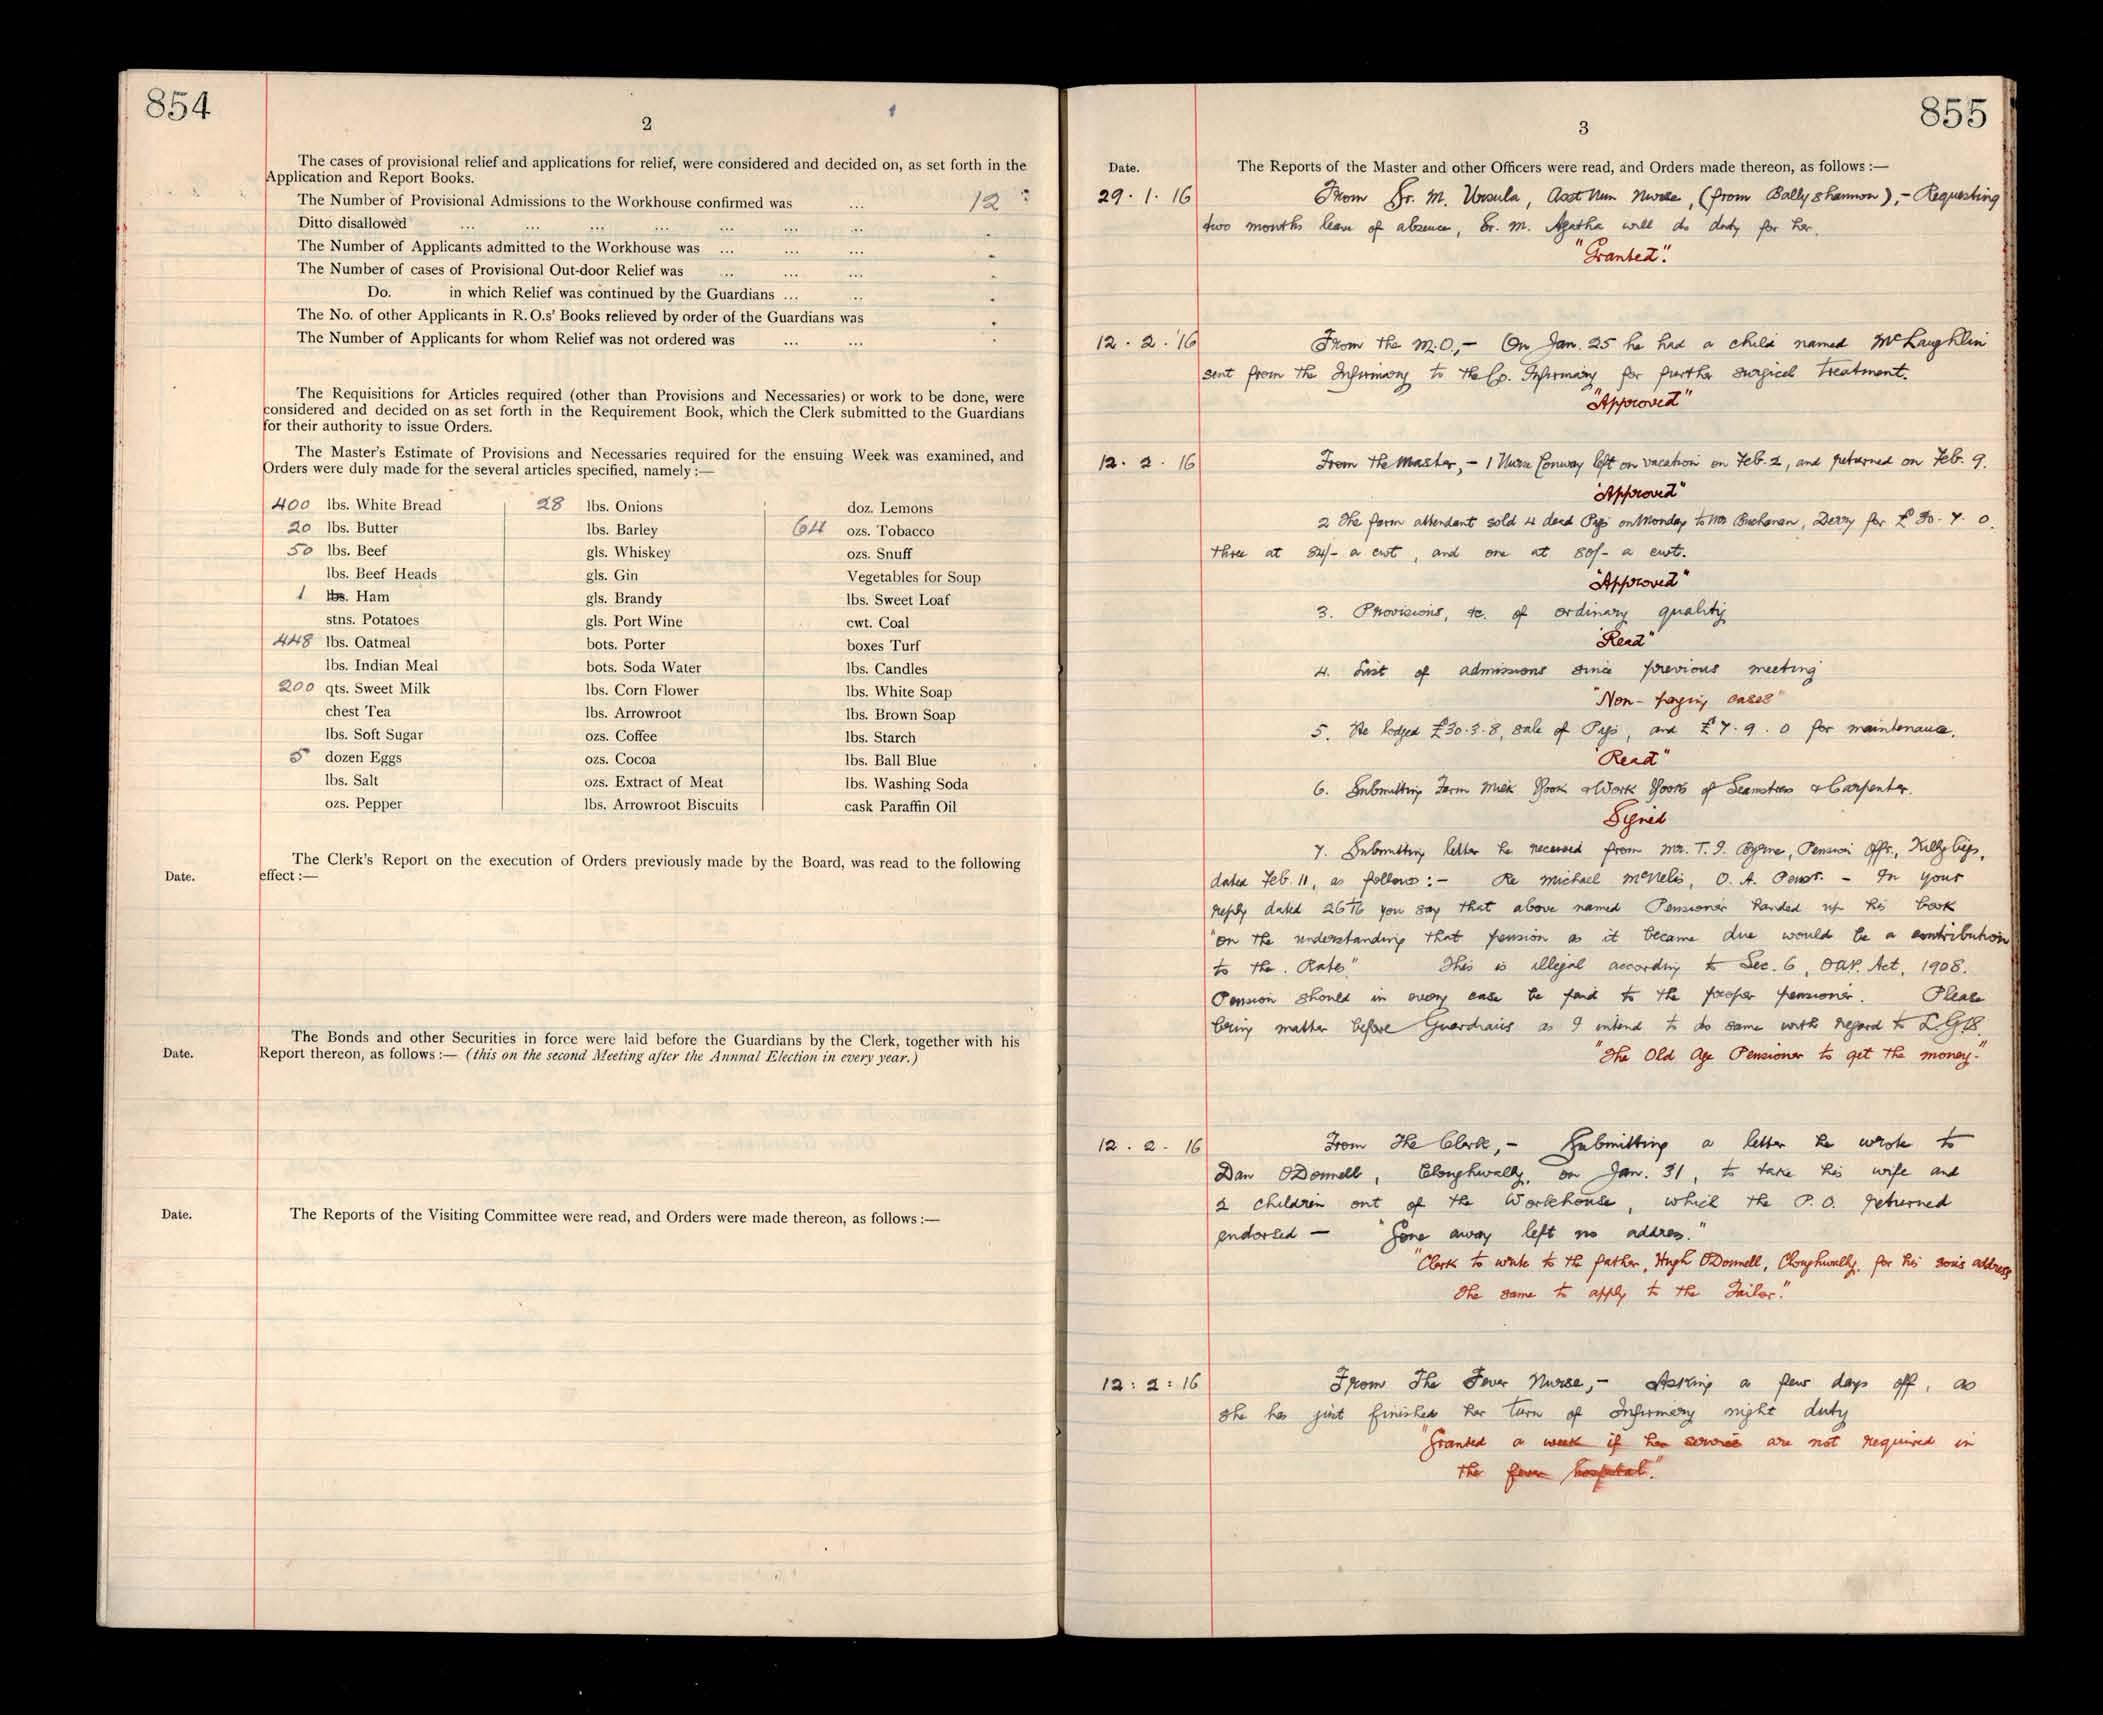 854
2
The cases of provisional relief and applications for relief, were considered and decided on, as set forth in the
Application and Report Books.
The Number of Provisional Admissions to the Workhouse confirmed was ... 12
Ditto disallowed ... ... ... ... ... ... ...
The Number of Applicants admitted to the Workhouse was ... ... ...
The Number of cases of Provisional Out-door Relief was ... ... ...
Do. in which Relief was continued by the Guardians ... ..
The No. of other Applicants in R.O.s' Books relieved by order of the Guardians was
The Number of Applicants for whom Relief was not ordered was ... ...
The Requisitions for Articles required (other than Provisions and Necessaries) or work to be done, were
considered and decided on as set forth in the Requirement Book, which the Clerk submitted to the Guardians
for their authority to issue Orders.
The Master's Estimate of Provisions and Necessaries required for the ensuing Week was examined, and
Orders were duly made for the several articles specified, namely :—
400 lbs. White Bread
20 lbs. Butter
50 lbs. Beef
lbs. Beef Heads
1 lbs. Ham
stns. Potatoes
448 lbs. Oatmeal
lbs. Indian Meal
200 qts. Sweet Milk
chest Tea
lbs. Soft Sugar
5 dozen Eggs
lbs. Salt
ozs. Pepper
28 lbs. Onions
lbs. Barley
gls. Whiskey
gls. Gin
gls. Brandy
gls. Port Wine
bots. Porter
bots. Soda Water
lbs. Corn Flower
lbs. Arrowroot
ozs. Coffee
ozs. Cocoa
ozs. Extract of Meat
lbs. Arrowroot Biscuits
doz. Lemons
64 ozs. Tobacco
ozs. Snuff
Vegetables for Soup
lbs. Sweet Loaf
cwt. Coal
boxes Turf
lbs. Candles
lbs. White Soap
lbs. Brown Soap
lbs. Starch
lbs. Ball Blue
lbs. Washing Soda
cask Paraffin Oil
The Clerk's Report on the execution of Orders previously made by the Board, was read to the following
Date. effect :—
The Bonds and other Securities in force were laid before the Guardians by the Clerk, together with his
Date. Report thereon, as follows :— (this on the second Meeting after the Annnal Election in every year.)
Date. The Reports of the Visiting Committee were read, and Orders were made thereon, as follows :—
855
3
Date. The Reports of the Master and other Officers were read, and Orders made thereon, as follows :—
29 . 1 . 16 From Sr. M. Ursula, Asst Nun Nurse, (from Ballyshannon), - Requesting
two months leave of absence, Sr. M. Agatha will do duty for her.
"Granted".
12 . 2 . '16 From the M.O., - On Jan. 25 he had a child named McLaughlin
sent from the Infirmary to the Co. Infirmary for further surgical treatment.
"Approved"
12 . 2 . 16 From the Master, - 1 Nurse Conway left on vacation on Feb. 2, and returned on Feb. 9.
"Approved"
2 The farm attendant sold 4 dead Pigs on Monday to Mr Buchanan, Derry for £ 30 . 7 . 0.
three at 84/- a cwt, and one at 80/- a cwt.
"Approved"
3. Provisions, &c. of ordinary quality
"Read"
4. List of admissions since previous meeting
"Non-paying cases"
5. He lodged £30.3.8, sale of Pigs, and £7.9.0 for maintenance.
"Read"
6. Submitting Farm Milk Book & Work Books of Seamstress & Carpenter.
Signed
7. Submitting letter he received from Mr. T. I. Byrne, Pension Offr., Killybegs,
dated Feb. 11, as follows :- Re Michael McNelis, O. A. Penr. - In your
reply dated 26th you say that above named Pensioner handed up his book
"on the understanding that pension as it became due would be a contribution
to the Rates." This is illegal according to Sec. 6, OAP. Act, 1908.
Pension should in every case be paid to the proper pensioner. Please
bring matter before Guardians as I intend to do same with regard to L.G.B.
"The Old Age Pensioner to get the money."
12 . 2 . 16 From The Clerk, - Submitting a letter he wrote to
Dan O'Donnell, Cloughwally, on Jan. 31, to take his wife and
2 children out of the Workhouse, which the P.O. returned
endorsed - "Gone away left no address."
"Clerk to write to the father, Hugh O'Donnell, Cloughwally, for his son's address
The same to apply to the Tailor."
12 : 2 : 16 From The Fever Nurse, - Asking a few days off, as
she has just finished her turn of Infirmary night duty
"Granted a week if her service are not required in
the fever hospital."